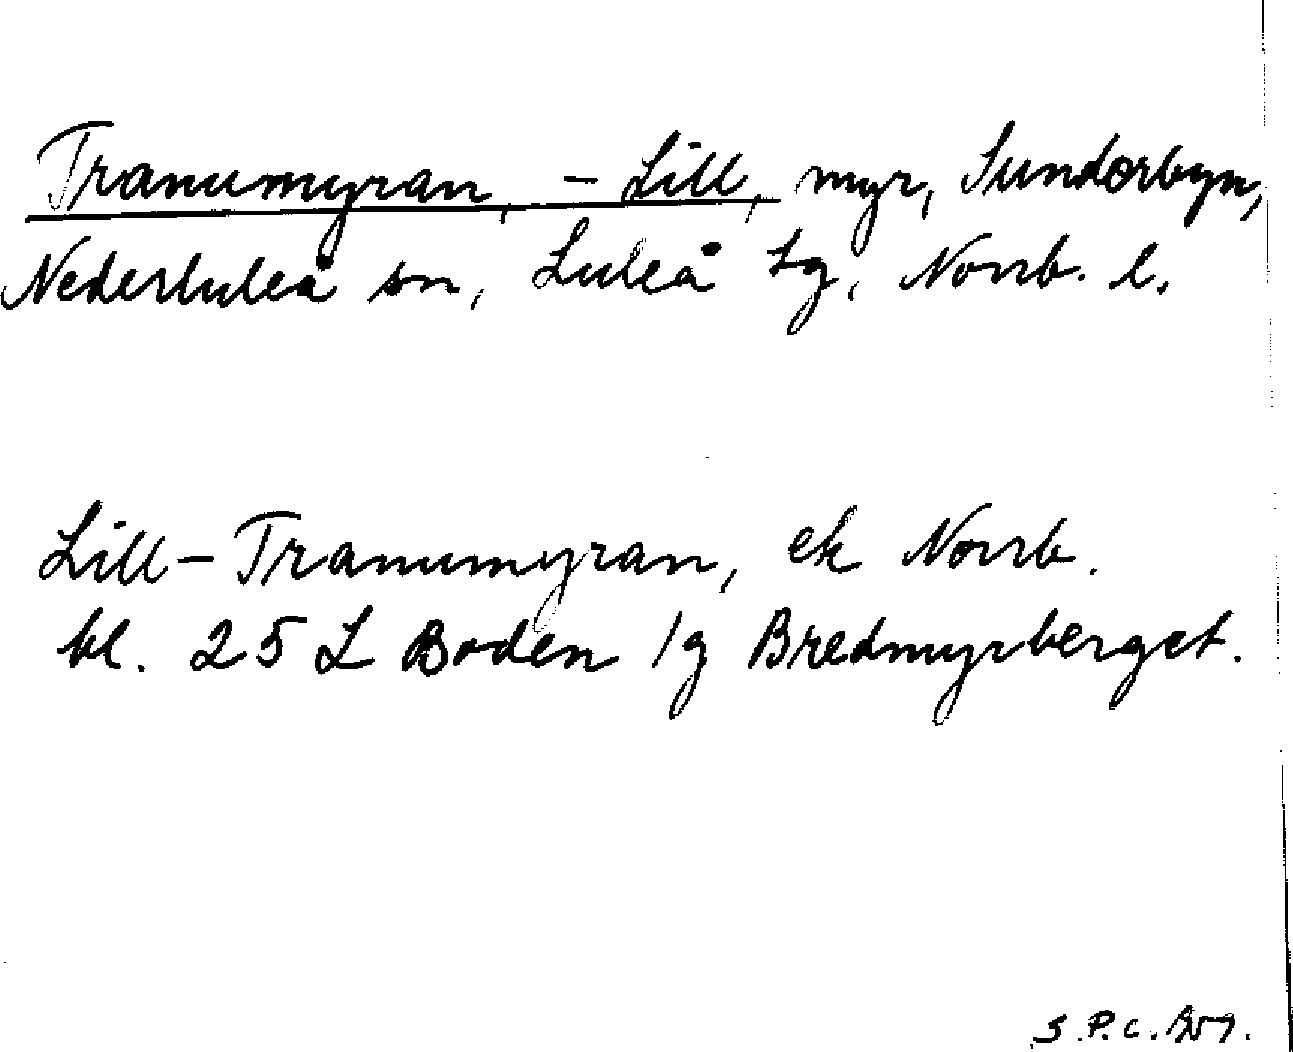 Tranumyran, - Lill, myr, Sunderbyn,
Nederluleå sn, Luleå tg, Norrb. l.
Lill-Tranumyran, ek Norrb.
bl. 25 L Boden /g Bredmyrberget.
S.P.C.